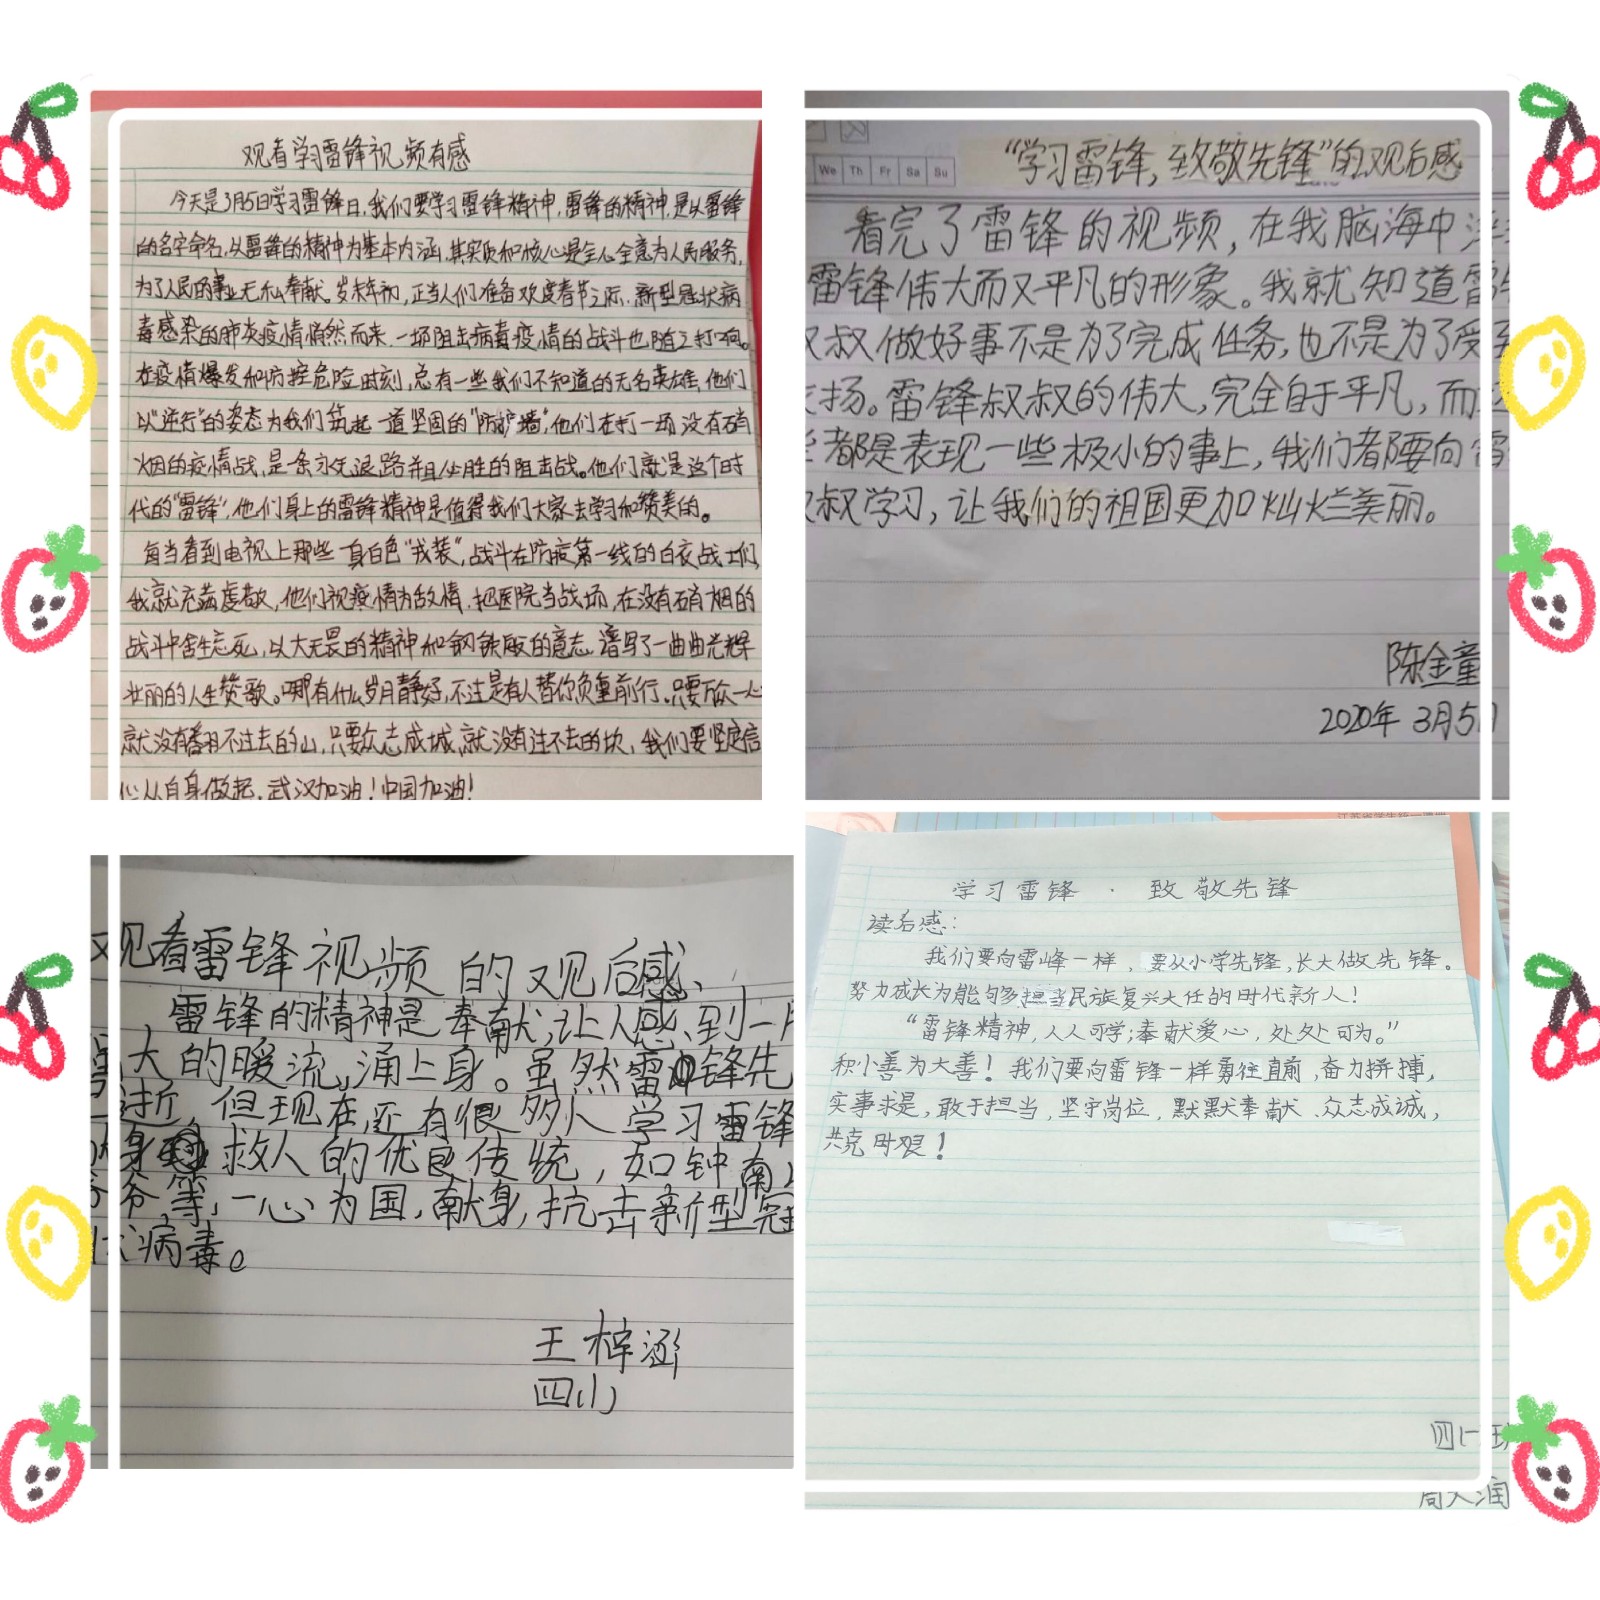 观看学习雷锋视频有感
今天是3月5日学习雷锋日,我们要学习雷锋精神,雷锋的精神,是以雷锋
的名字命名,以雷锋的精神为基本内涵,其实质和核心是全心全意为人民服务,
为了人民的事业无私奉献。岁末年初,正当人们准备欢度春节之际,新型冠状病
毒感染的肺炎疫情悄然而来,一场阻击病毒疫情的战斗也随之打响。
在疫情爆发和防控危险时刻,总有一些我们不知道的无名英雄,他们
以"逆行"的姿态为我们筑起一道坚固的"防护墙",他们在打一场没有硝
烟的疫情战,是条永无退路并且必胜的阻击战。他们就是这个时
代的"雷锋",他们身上的雷锋精神是值得我们大家去学习和赞美的。
每当看到电视上那些一身白色"戎装",战斗在防疫第一线的白衣战士们,
我就充满虔敬,他们视疫情为敌情,把医院当战场,在没有硝烟的
战斗中舍生忘死,以大无畏的精神和钢铁般的意志,谱写了一曲曲光辉
壮丽的人生赞歌。哪有什么岁月静好,不过是有人替你负重前行。只要万众一心
就没有翻不过去的山,只要众志成城,就没有过不去的坎,我们要坚定信
心从自身做起,武汉加油!中国加油!
We Th Fr Sa Su
"学习雷锋,致敬先锋"的观后感
看完了雷锋的视频,在我脑海中浮
雷锋伟大而又平凡的形象。我就知道雷
叔做好事不是为了完成任务,也不是为了受到
扬。雷锋叔叔的伟大,完全自于平凡,而这
都是表现一些极小的事上,我们都要向雷
叔学习,让我们的祖国更加灿烂美丽。
陈金童
2020年3月5日
观看雷锋视频的观后感
雷锋的精神是奉献,让人感到一
大的暖流,涌上身。虽然雷锋先
逝,但现在还有很多人学习雷锋
身救人的优良传统,如钟南
爷等,一心为国,献身,抗击新型冠
状病毒。
王梓涵
四(1)
学习雷锋·致敬先锋
读后感:
我们要向雷峰一样,要从小学先锋,长大做先锋。
努力成长为能够担当民族复兴大任的时代新人!
"雷锋精神,人人可学;奉献爱心,处处可为。"
积小善为大善!我们要向雷锋一样勇往直前,奋力拼搏,
实事求是,敢于担当,坚守岗位,默默奉献、众志成诚,
共克时艰!
四(一)班
润